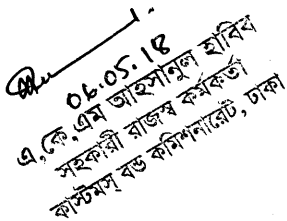 06.05.18
এ,কে,এম আহসানুল হাবিব
সহকারী রাজস্ব কর্মকর্তা
কাস্টমস্ বন্ড কমিশনারেট, ঢাকা